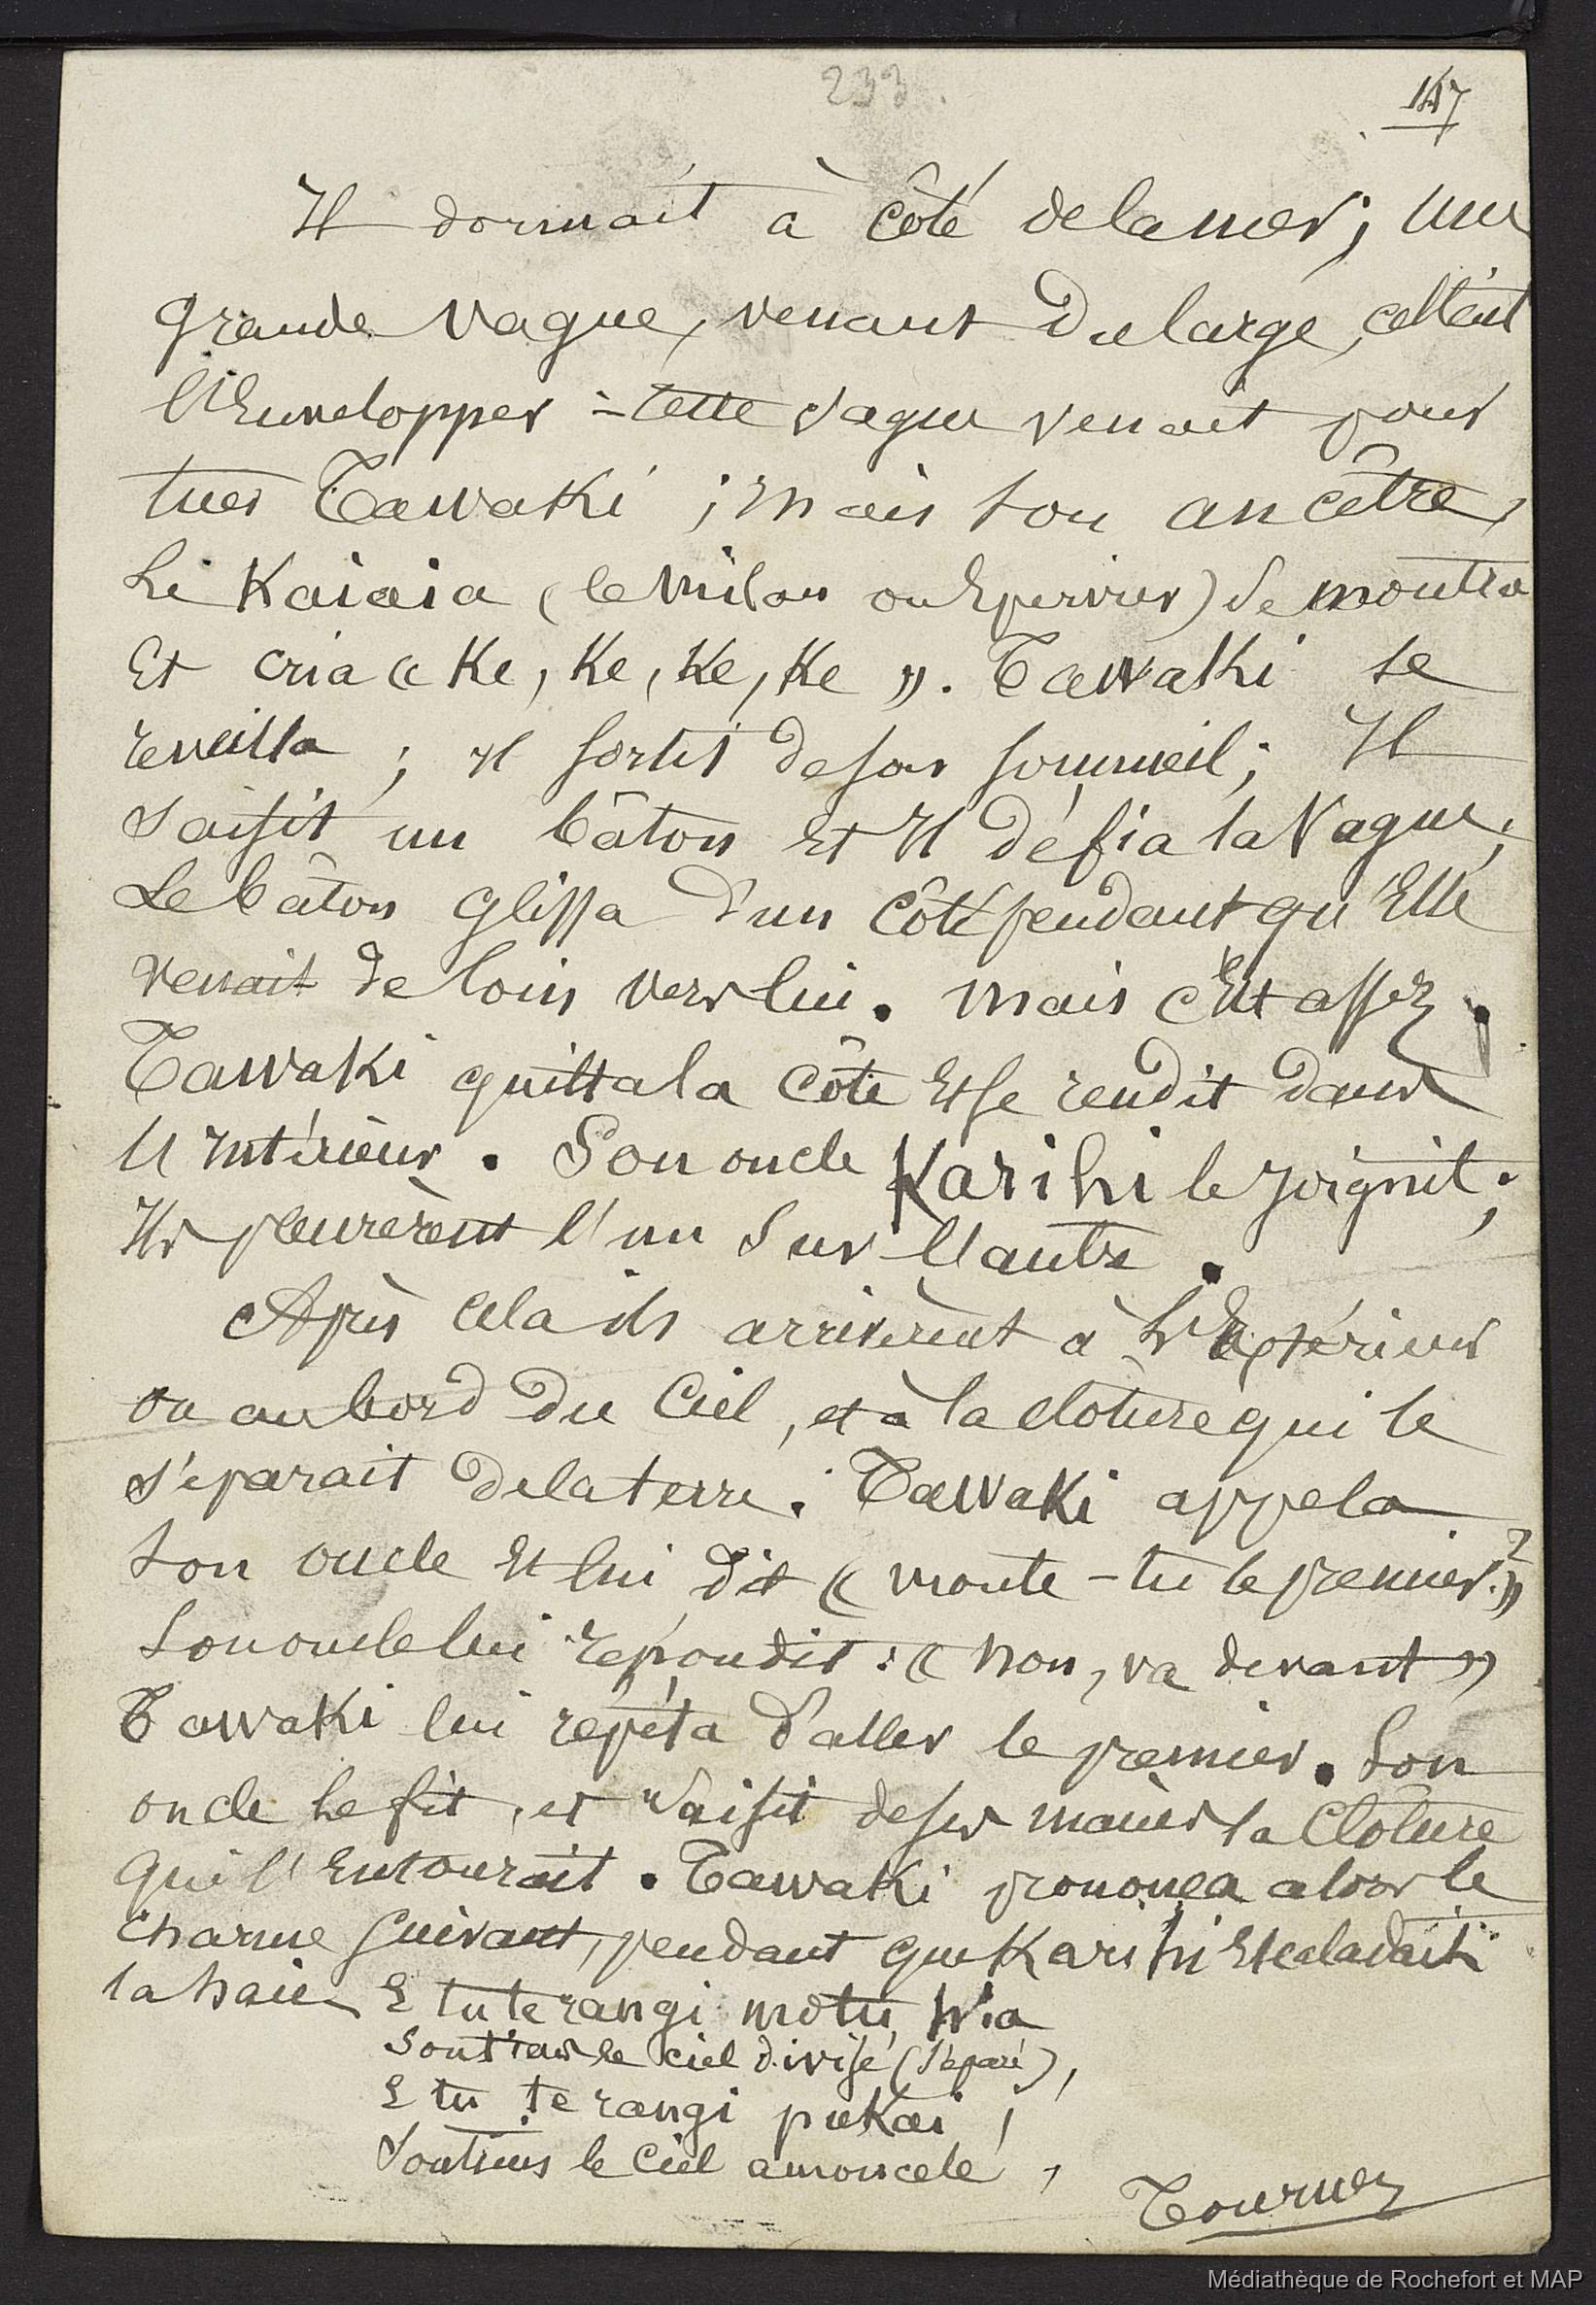 233.
147
Il dormait à côté de la mer; une
grande vague, venant du large, allait
l'Envelopper - Cette vague venait pour
tuer Tawaki; mais son ancêtre,
Le Kaiaia (le Milan ou Epervier) se montra
Et cria « Ke, Ke, Ke, Ke ». Tawaki se
reveilla; Il sortit de son sommeil; Il
saisit un bâton Et Il défia la Vague;
Le bâton glissa d'un côté pendant qu'Elle
venait de loin vers lui. mais c'Est assez.
Tawaki quitta la côte Et se rendit dans
l'Intérieur. Son oncle Karihi le joignit;
Ils pleurèrent l'un sur l'autre.
Après cela ils arrivèrent à L'Extérieur
ou au bord du Ciel, et à la cloture qui le
séparait de la terre. Tawaki appela
son oncle Et lui dit « monte-tu le premier? »
Son oncle lui répondit: « non, va devant »
Tawaki lui répéta d'aller le premier. Son
oncle le fit, et saisit de ses mains la Clôture
qui l'Entourait. Tawaki prononça alors le
charme suivant, pendant que Karihi Escaladait
la haie E tu te rangi motu Wia
Soutiens le ciel divisé (séparé),
E tu te rangi pukai,
Soutiens le Ciel amoncelé,
Tournez
Médiathèque de Rochefort et MAP